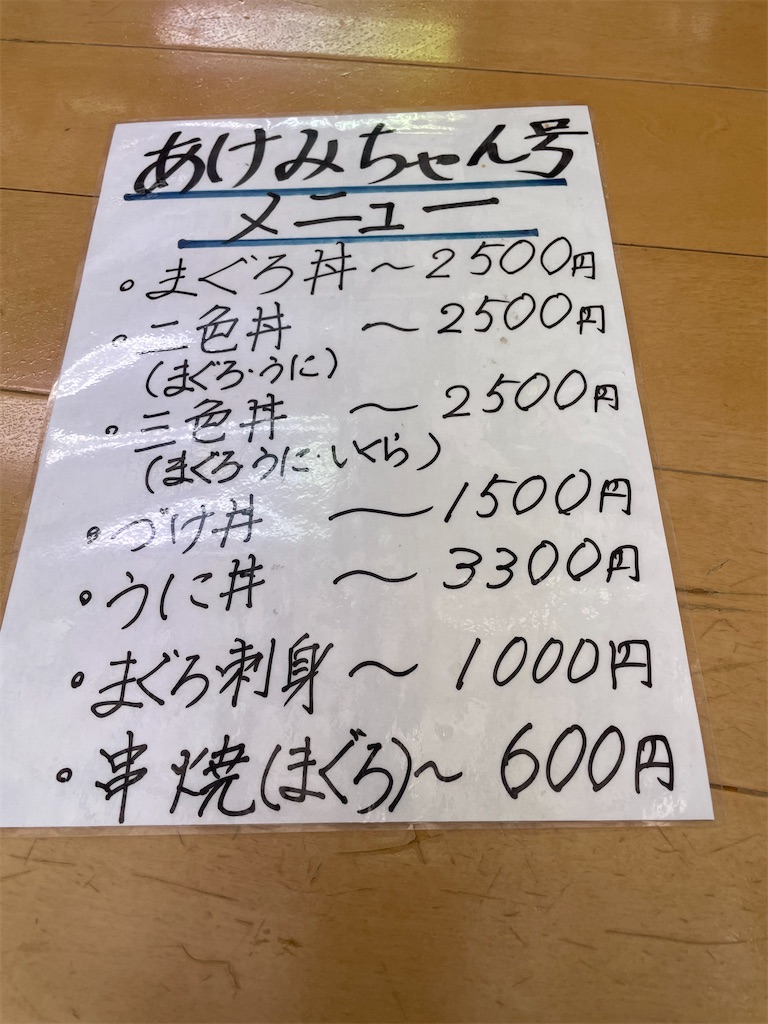 あけみちゃん号
メニュー
・まぐろ丼〜2500円
・二色丼 〜2500円
(まぐろ・うに)
・三色丼 〜2500円
(まぐろ・うに・いくら)
・づけ丼 〜1500円
・うに丼 〜3300円
・まぐろ刺身〜1000円
・串焼(まぐろ)〜600円